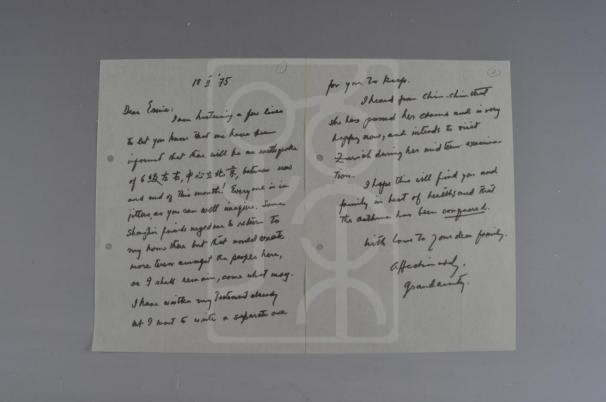 18 II '75
①
Dear Ernie:
I am hastening a few lines
to let you know that we have been
informed that there will be an earthquake
of 6级左右,中心在北京, between now
and end of this month! Everyone is in
jitters, as you can well imagine. Some
Shanghai friends urged me to return to
my home there but that would create
more terror amongst the people here,
so I shall remain, come what may.
I have written my Testament already
but I want to write a separate one
②
for you to keep.
I heard from Chin-chin that
she has passed her exams and is very
happy now, and intends to visit
Zurich during her mid term examina-
tion.
I hope this will find you and
family in best of health and that
the asthma has been conquered.
With love to your dear family.
Affectionately,
Grandaunty.